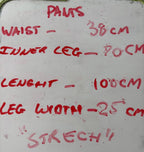 PANTS
WAIST - 38CM
INNER LEG - 80CM
LENGHT - 100CM
LEG WIDTH - 25CM
"STRECH"